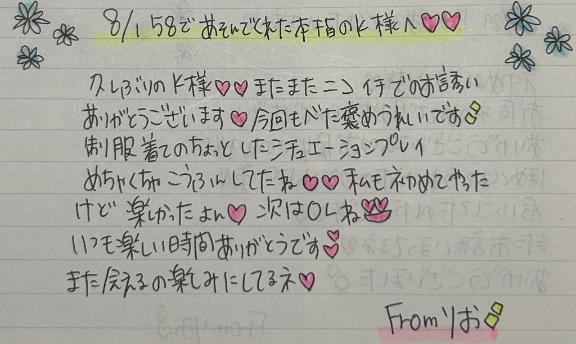 8/1 58であそんでくれた本指のK様へ♡♡
久しぶりのK様♡♡またまたニコイチでのお誘い
ありがとうございます♡今回もべた褒めうれしいです
制服着てのちょっとしたシチュエーションプレイ
めちゃくちゃこうふんしてたね♡♡私も初めてやった
けど楽しかったよん♡次はOLね
いつも楽しい時間ありがとうです
また会えるの楽しみにしてるネ♡
Fromりお